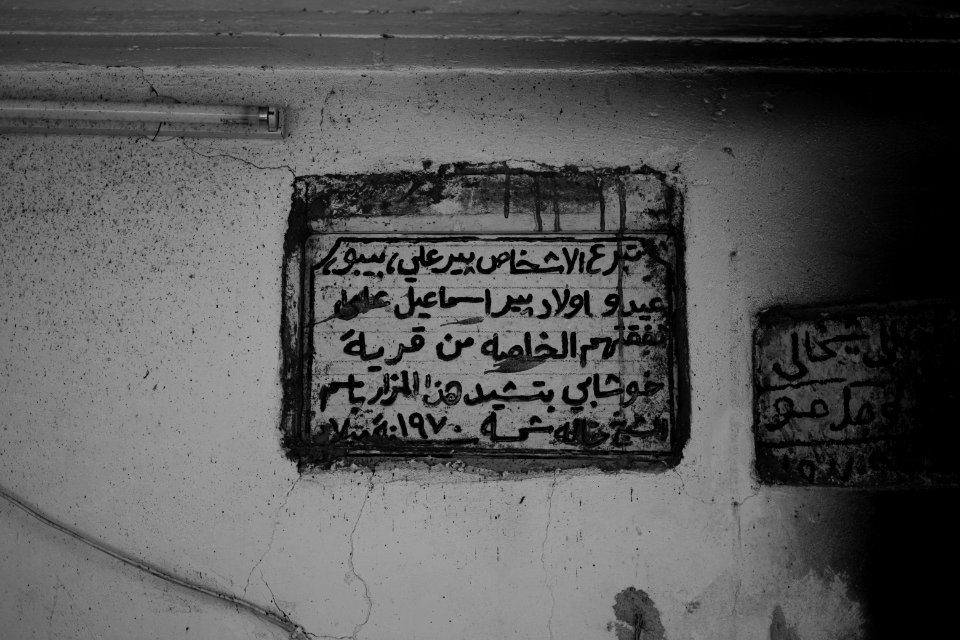 تبرع الاشخاص بيرعلي، بيبو،
عيدو و اولاد بير اسماعيل على
نفقتهم الخاصه من قرية
خوشابي بتشيد هذا المزار باسم
الشيخ خاله شمسه ١٩٧٠
شيخالي